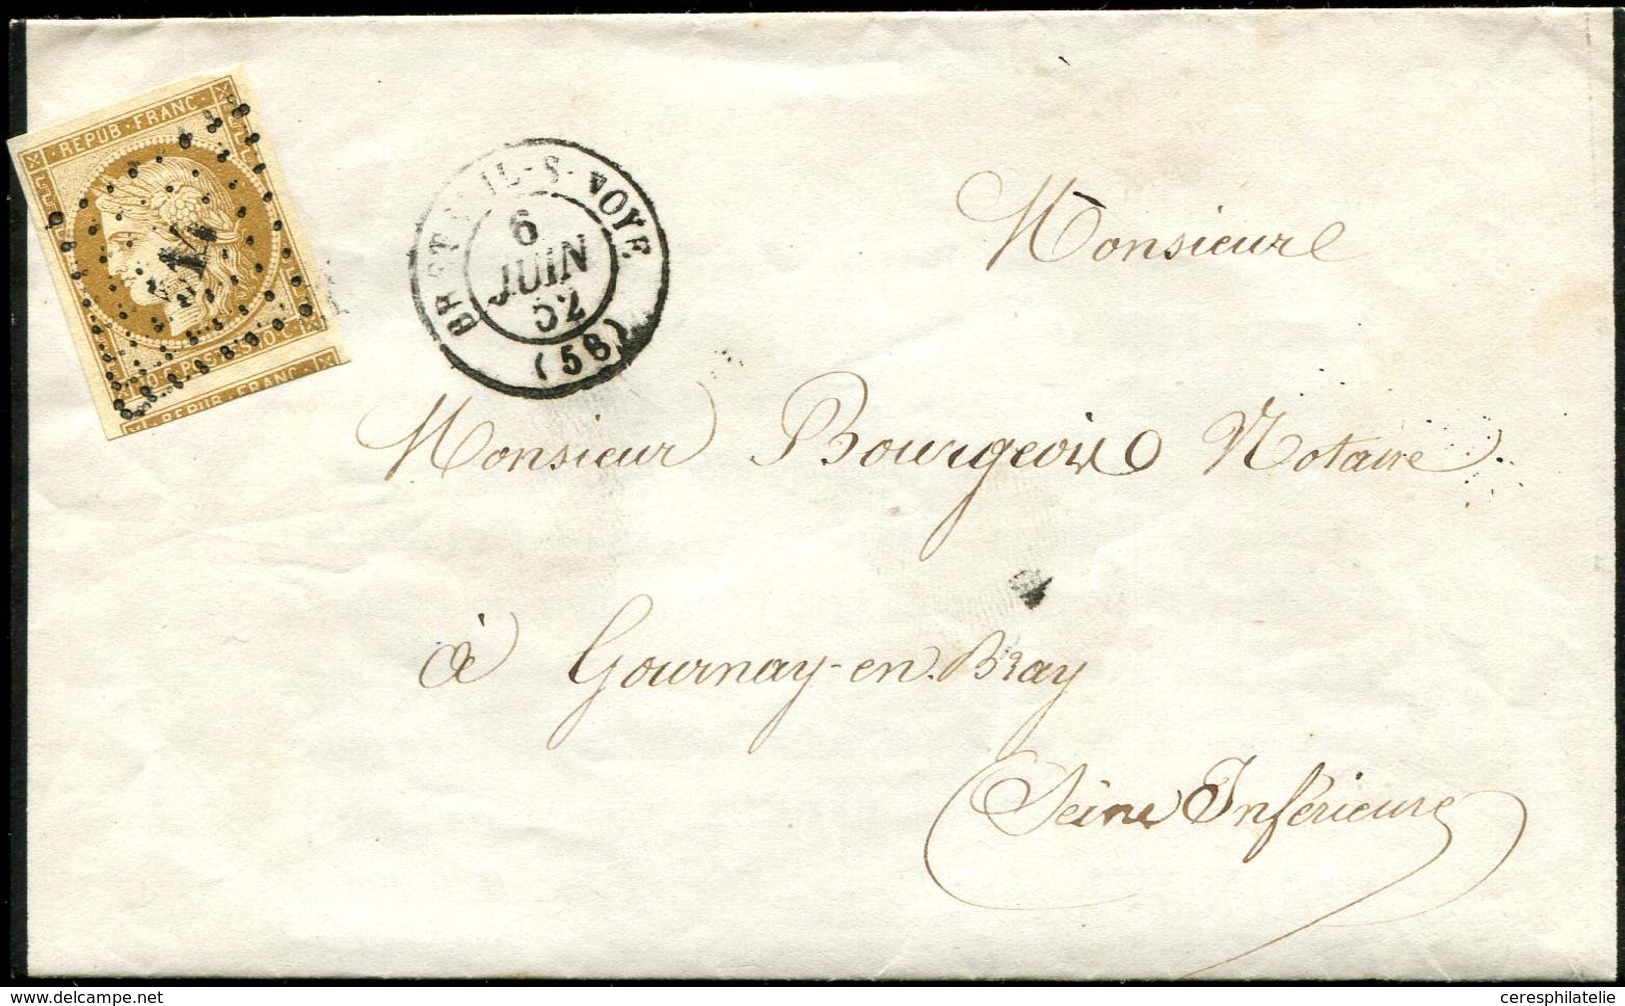 REPUB · FRANC ·
10 · C · POSTES · 10 · C
REPUB · FRANC ·
BRETEUIL-S-NOYE
6
JUIN
52
(58)
Monsieur
Monsieur Bourgeois Notaire
à Gournay-en-Bray
Seine Inférieure
delcampe.net
ceresphilatelie